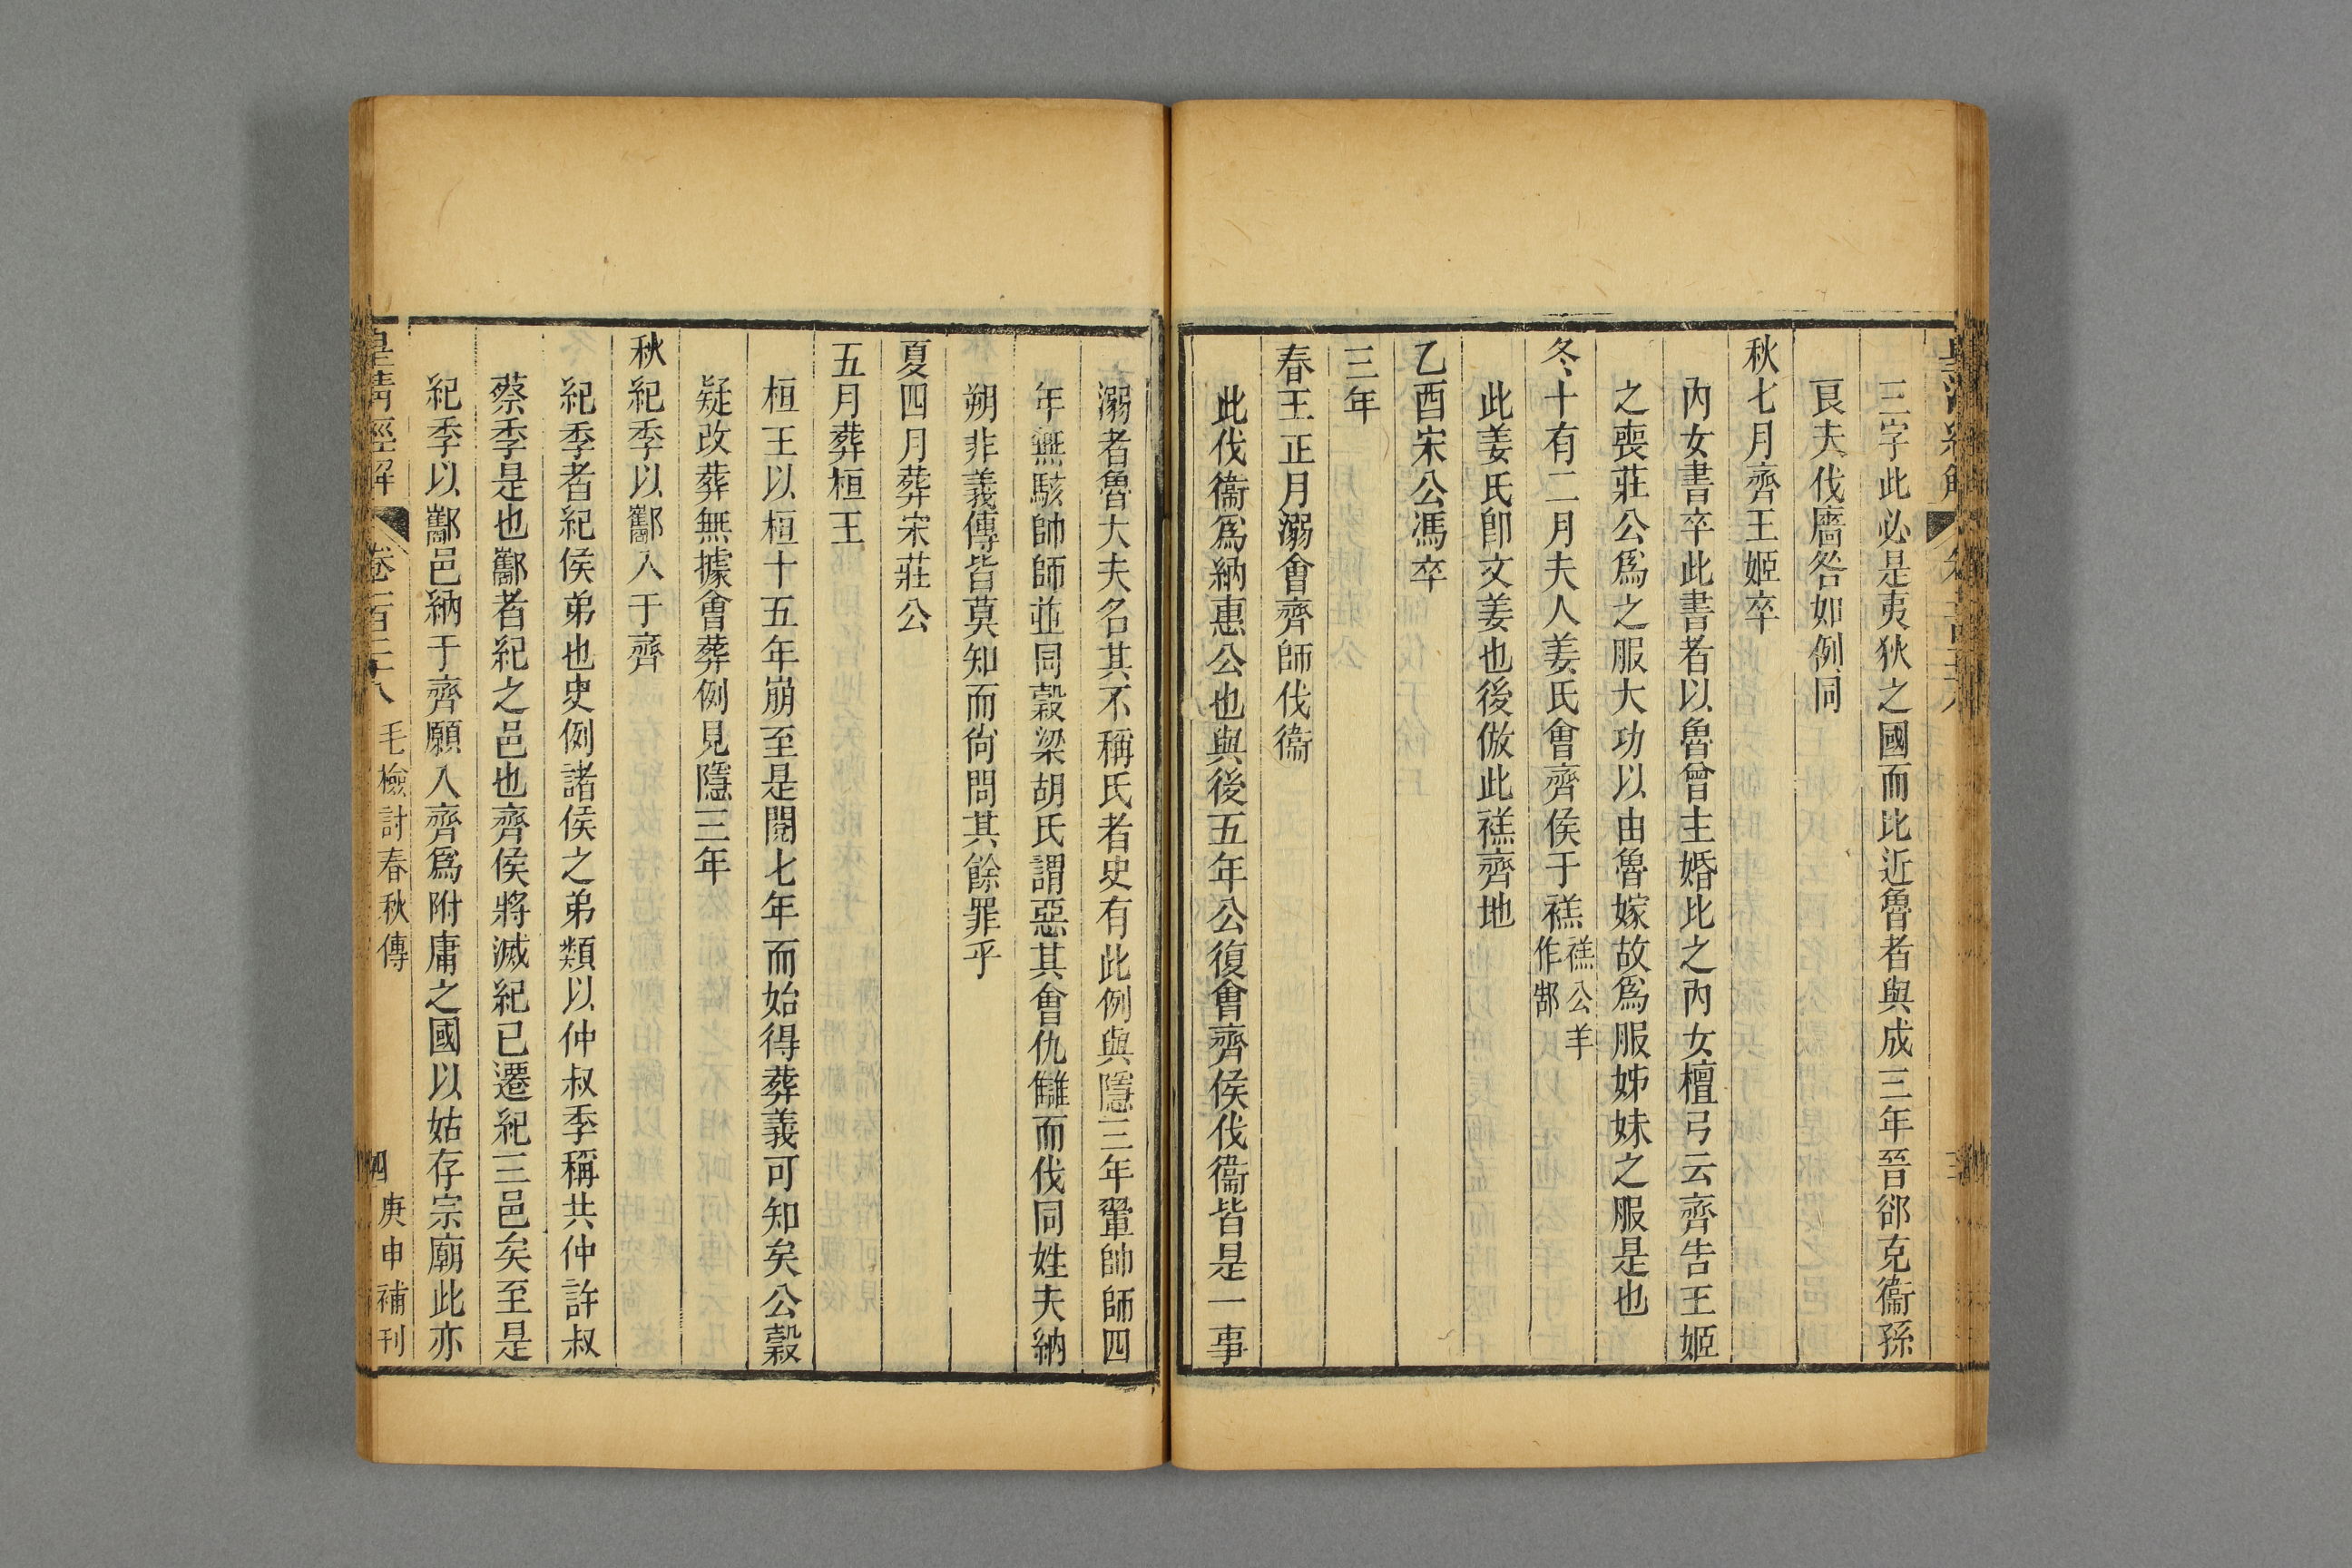 三字此必是夷狄之國而比近魯者與成三年晉郤克衞孫
良夫伐廧咎如例同
秋七月齊王姬卒
內女書卒此書者以魯曾主婚比之內女檀弓云齊告王姬
之喪莊公爲之服大功以由魯嫁故爲服姊妹之服是也
冬十有二月夫人姜氏會齊侯于禚禚公羊作郜
此姜氏卽文姜也後倣此禚齊地
乙酉宋公馮卒
三年
春王正月溺會齊師伐衞
此伐衞爲納惠公也與後五年公復會齊侯伐衞皆是一事
溺者魯大夫名其不稱氏者史有此例與隱三年翬帥師四
年無駭帥師並同穀梁胡氏謂惡其會仇讎而伐同姓夫納
朔非義傳皆莫知而尙問其餘罪乎
夏四月葬宋莊公
五月葬桓王
桓王以桓十五年崩至是閱七年而始得葬義可知矣公穀
疑改葬無據會葬例見隱三年
秋紀季以酅入于齊
紀季者紀侯弟也史例諸侯之弟類以仲叔季稱共仲許叔
蔡季是也酅者紀之邑也齊侯將滅紀已遷紀三邑矣至是
紀季以酅邑納于齊願入齊爲附庸之國以姑存宗廟此亦
皇淸經解 卷一百二十八 毛檢討春秋傳 四 庚申補刊